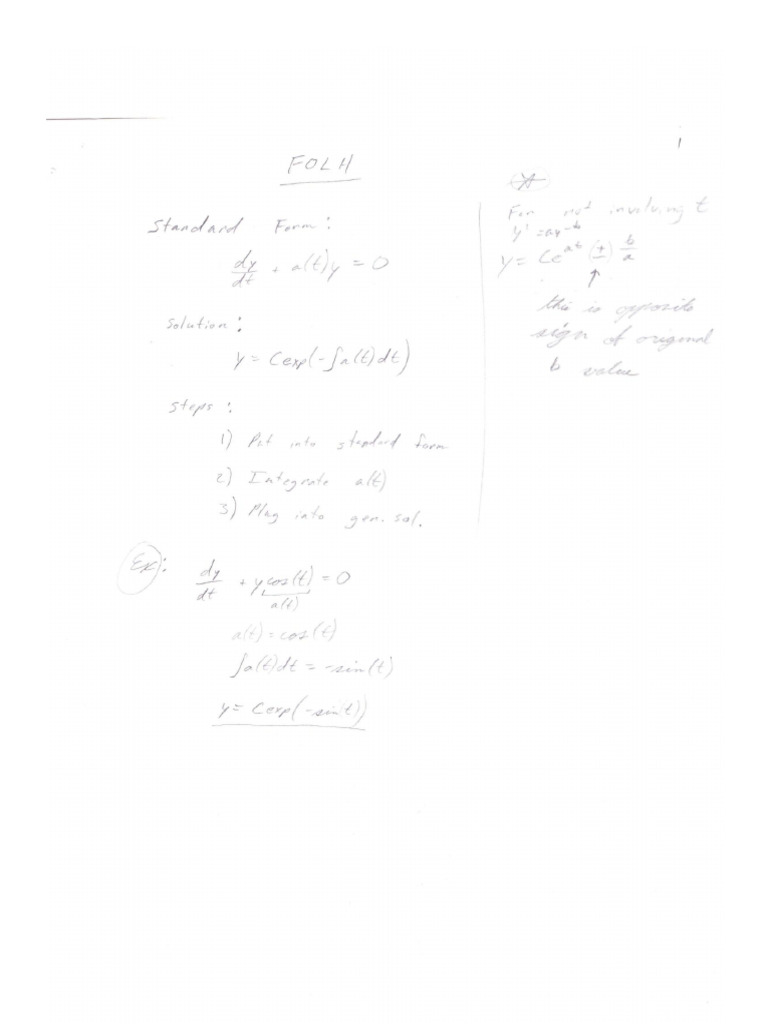 1
FOLH
Standard Form:
dy/dt + a(t)y = 0
Solution:
y = Cexp(-∫a(t)dt)
Steps:
1) Put into standard form
2) Integrate a(t)
3) Plug into gen. sol.
Ex: dy/dt + y cos(t) = 0
a(t)
a(t) = cos(t)
∫a(t)dt = -sin(t)
y = Cexp(-sin(t))
For not involving t
y' = ay-b
y = Ce^at (±) b/a
↑
this is opposite
sign of original
b value